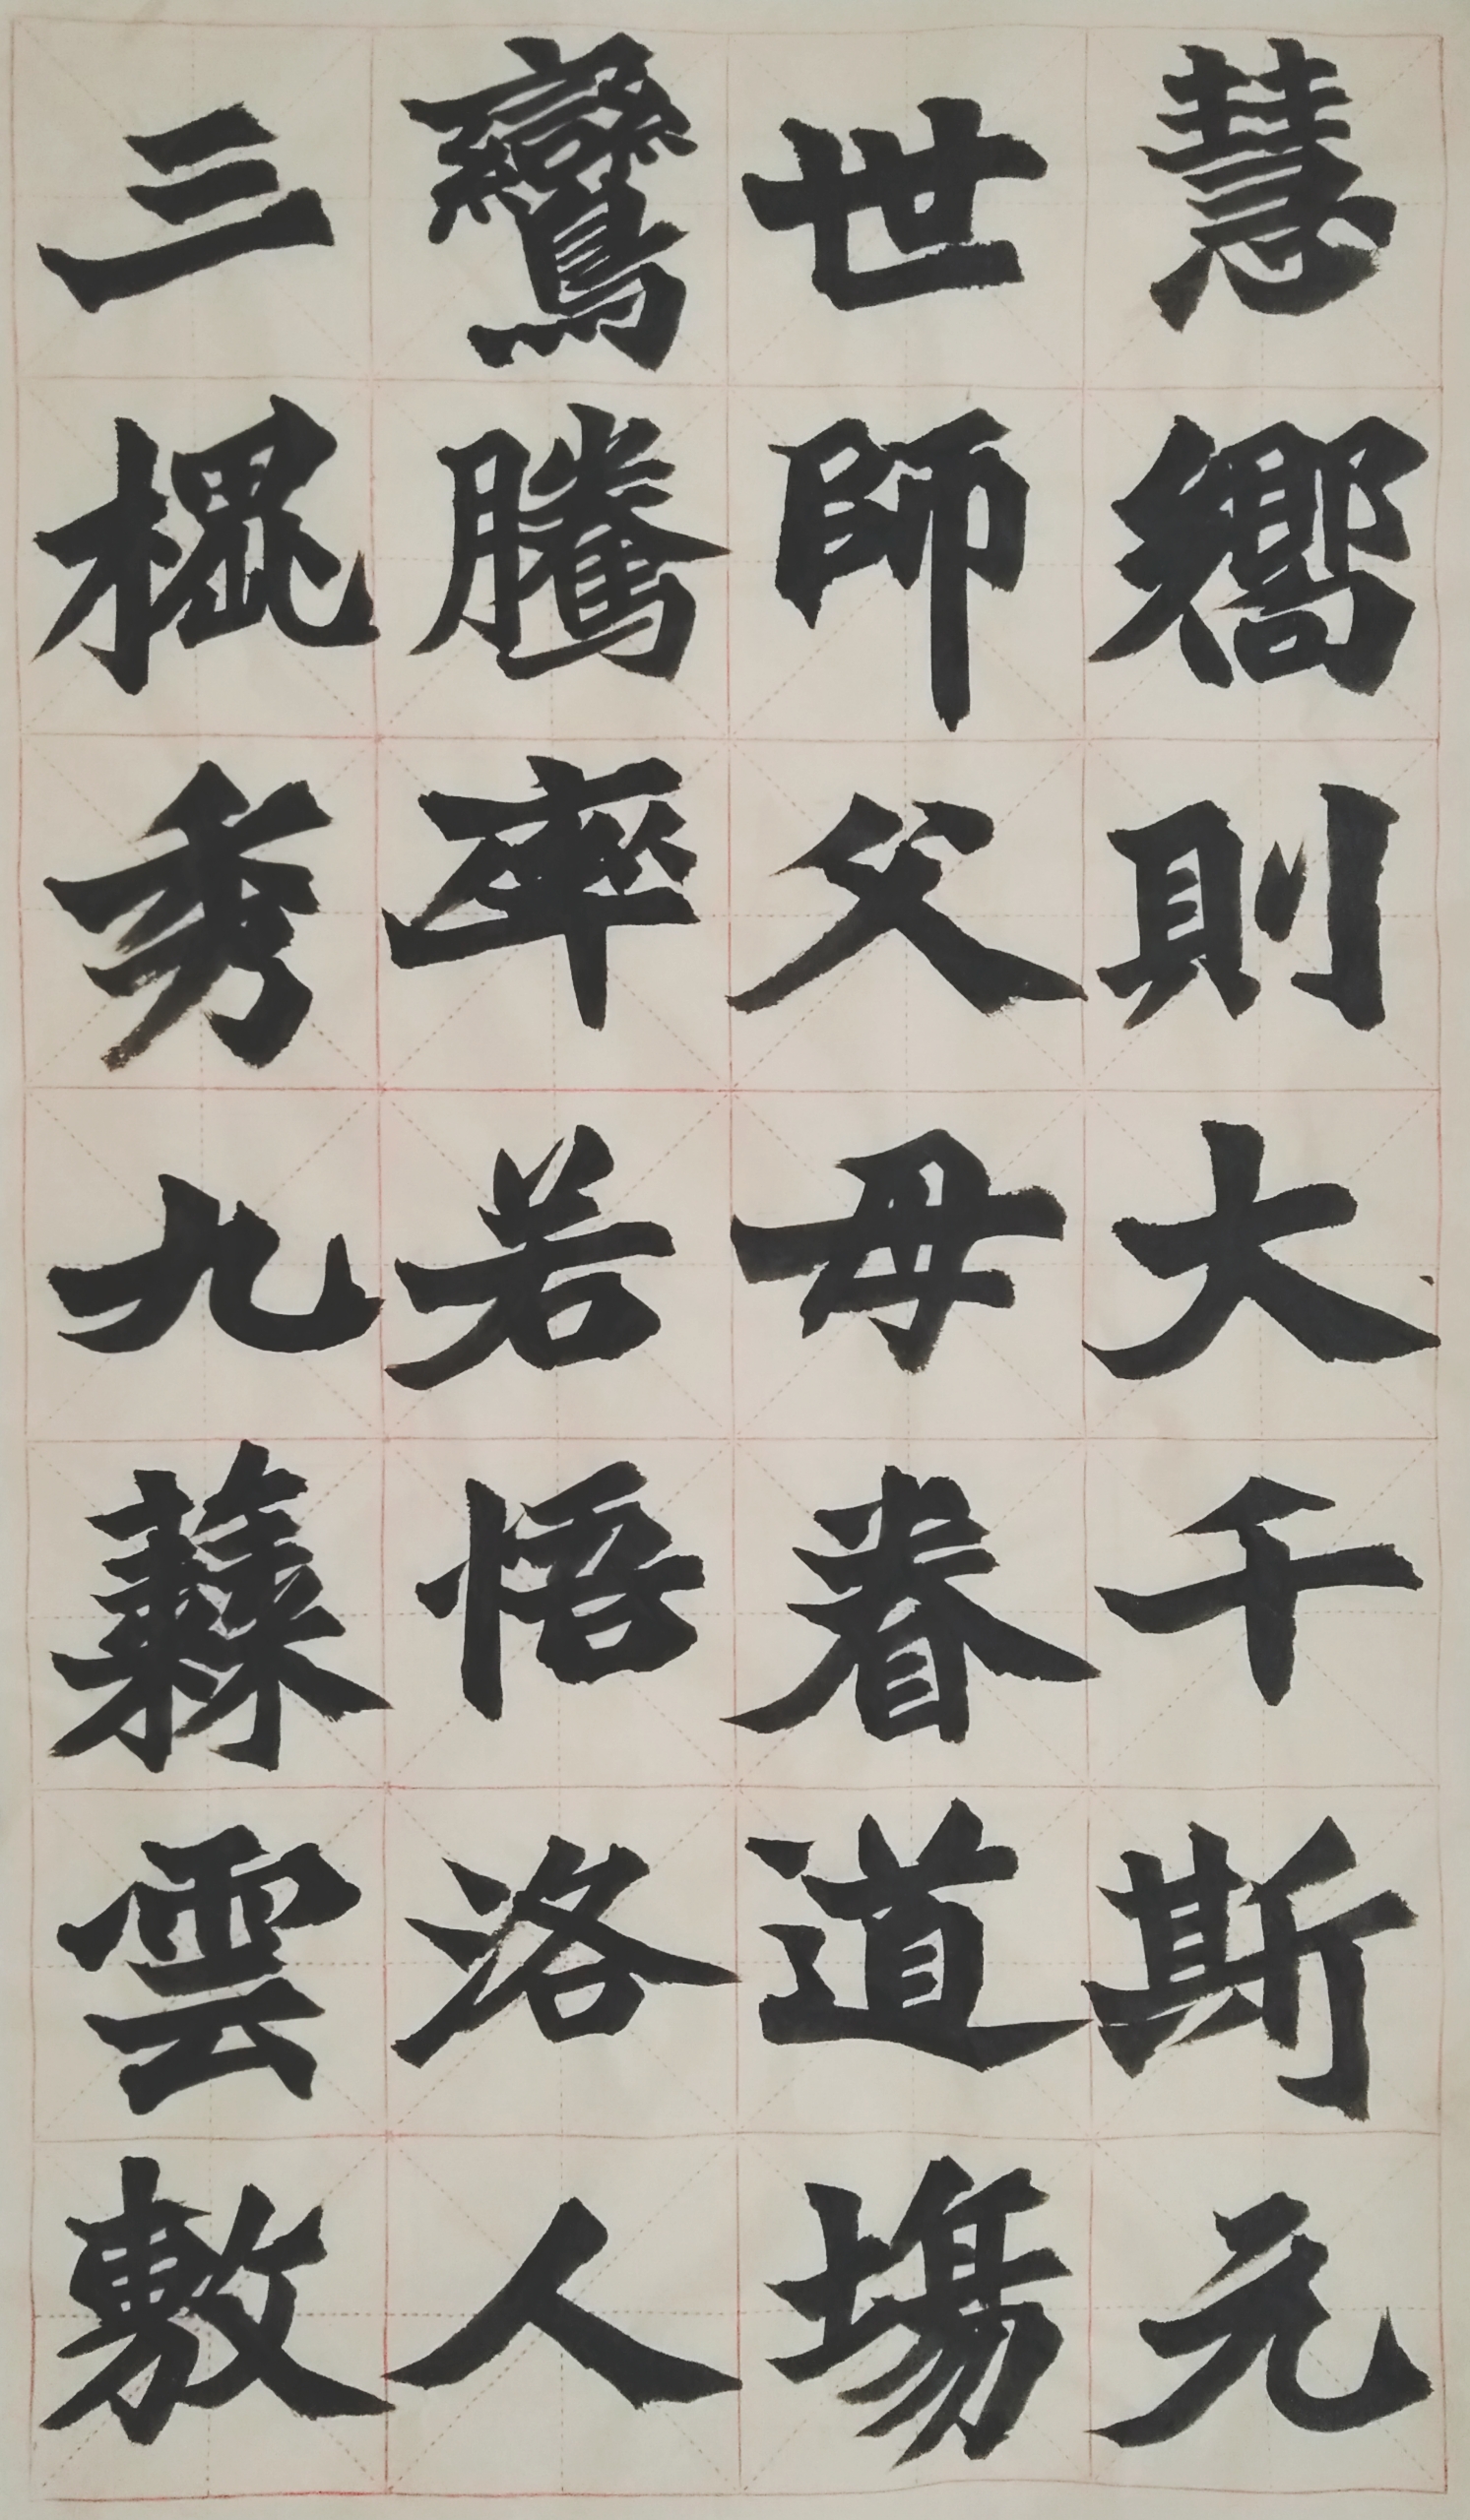 慧嚮則大千斯元
世師父母眷道塲
鸞騰率若悟洛人
三槐秀九蕀雲敷